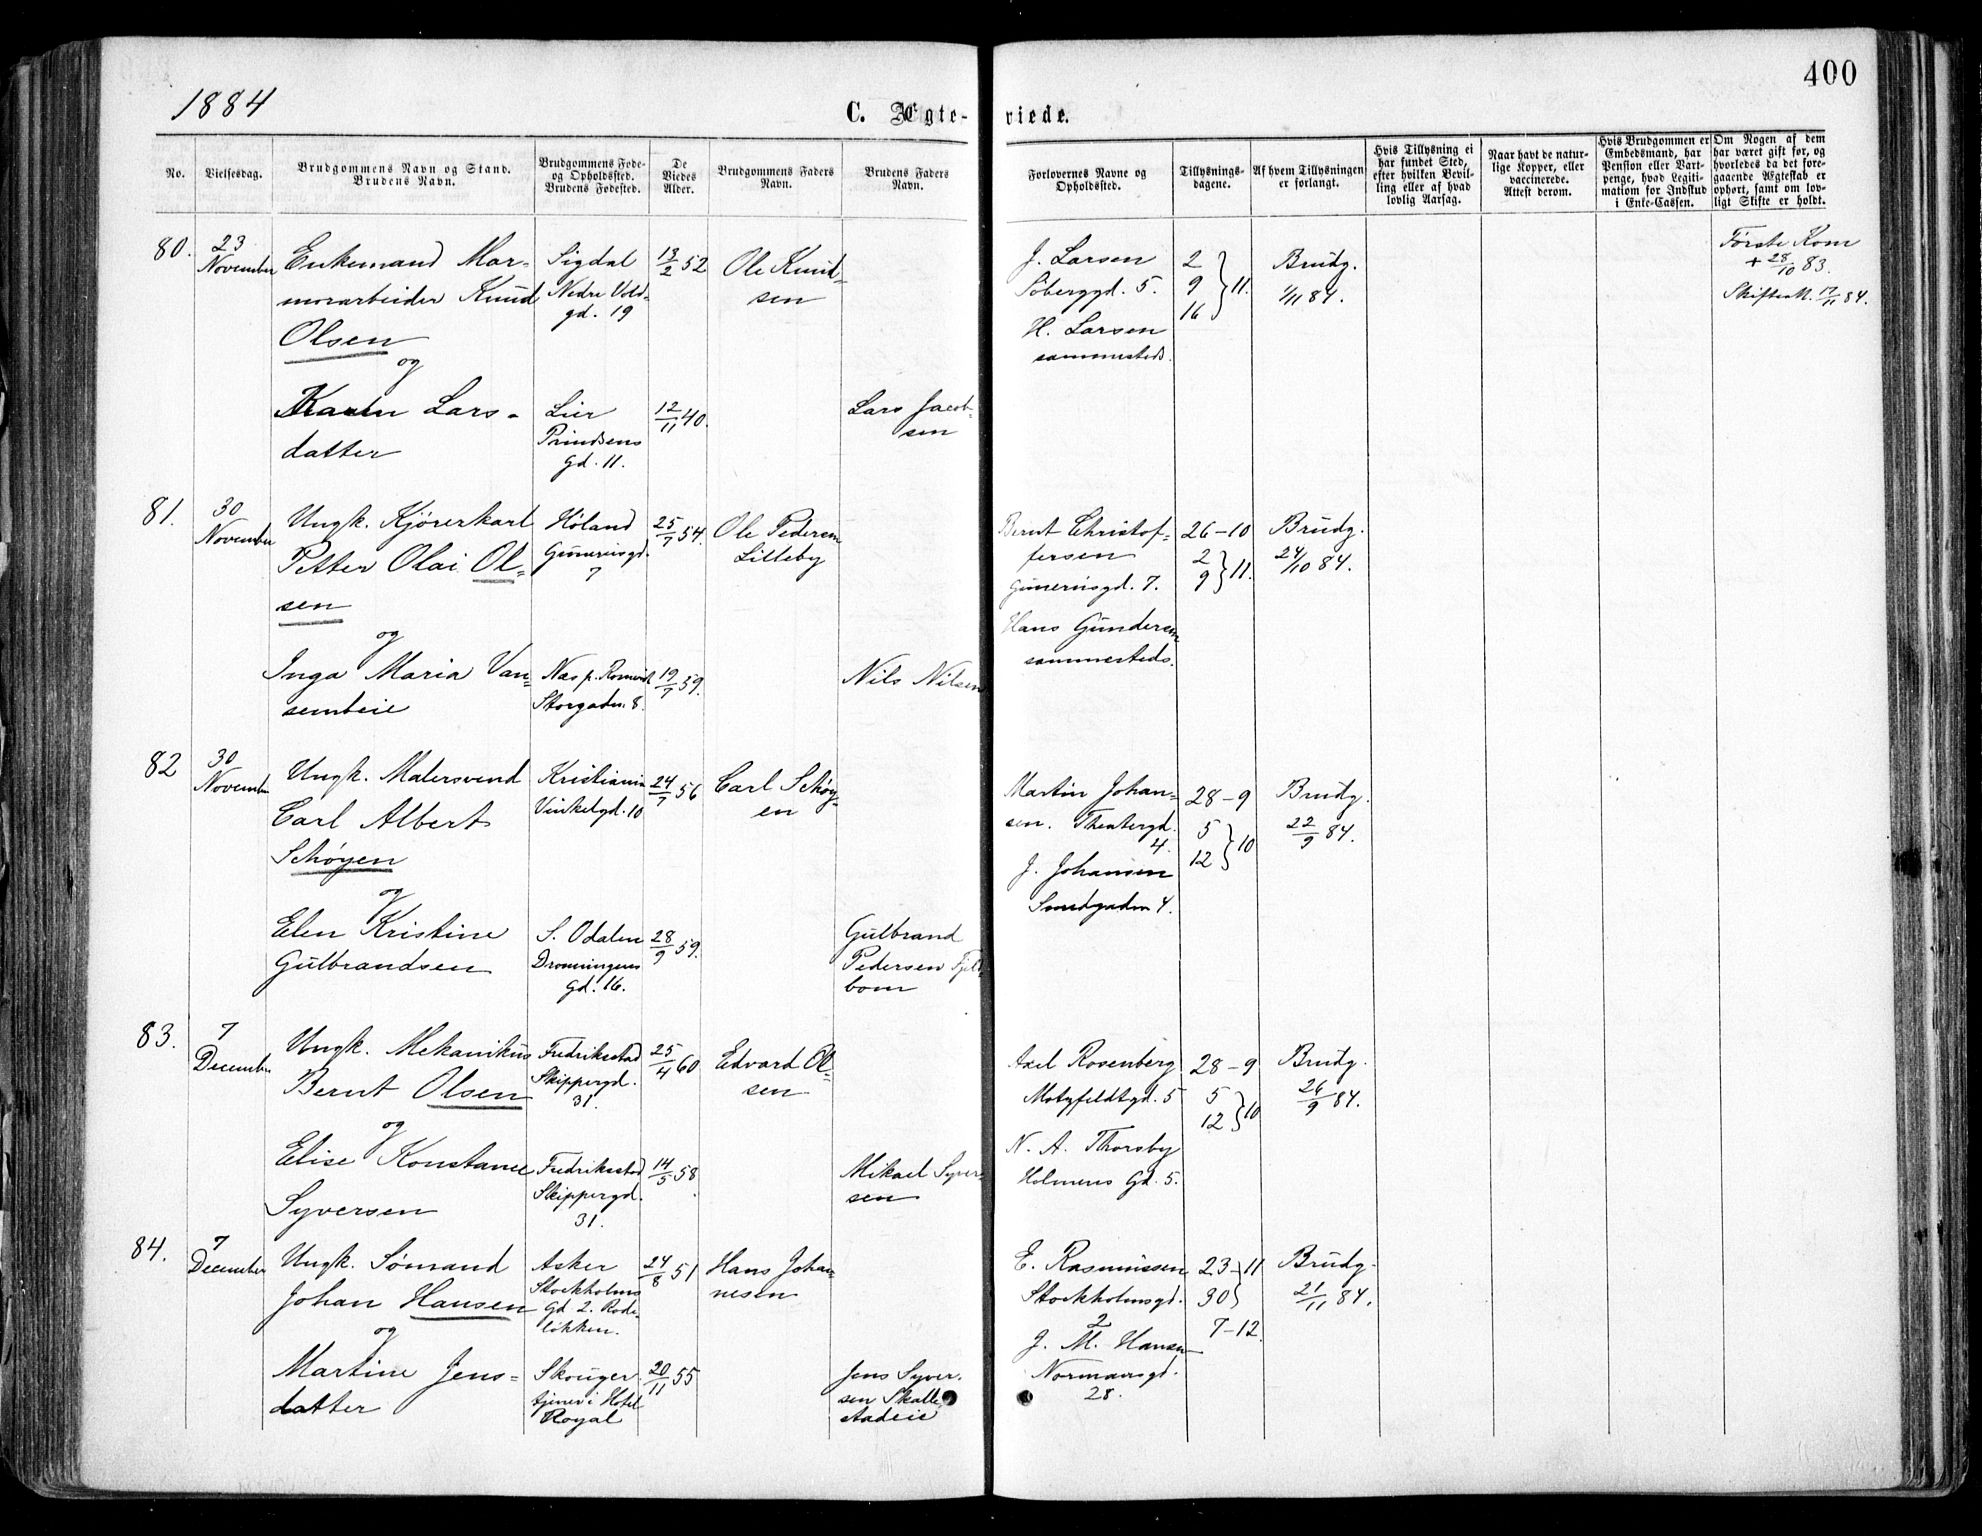 400
1884
C. Ægte-viede.
No.
Vielsesdag.
Brudgommens Navn og Stand.
Brudens Navn.
Brudgommens Føde-
og Opholdssted.
Brudens Fødested.
De
Viedes
Alder.
Brudgommens Faders
Navn.
Brudens Faders
Navn.
Forlovernes Navne og
Opholdssted.
Tillysnings-
dagene.
Af hvem Tillysningen
er forlangt.
Hvis Tillysning ei
har fundet Sted,
efter hvilken Bevil-
ling eller af hvad
lovlig Aarsag.
Naar havt de natur-
lige Kopper, eller
vaccinerede.
Attest derom.
Hvis Brudgommen er
Embedsmand, har
Pension eller Vart-
penge, hvad Legiti-
mation for Indskud
i Enke-Cassen.
Om Nogen af dem
har været gift før, og
hvorledes da det fore-
gaaende Ægteskab er
ophørt, samt om lov-
ligt Skifte er holdt.
80.
23
November
Enkemand Mar-
morarbeider Knud
Olsen
og
Karen Lars-
datter
Sigdal
Nedre Vold-
gd. 19
Lier
Prindsens
Gd. 11.
13/2 52
12/11 40.
Ole Knud-
sen
Lars Jacob-
sen
J. Larsen
Söberggd. 5.
H. Larsen
sammesteds.
2
9
16 } 11.
Brudg.
1/11 84.
Første Kom
+ 28/10 83.
Skifteatt. 17/11 84.
81.
30
November
Ungk. Kjørerkarl
Petter Olai Ol-
sen
og
Inga Maria Van-
sembeie
Høland
Grünerisgd.
7
Næs p. Romerik
Storgaden 8.
25/7 54.
19/7 59.
Ole Pedersen
Lilleby
Nils Nilsen
Bernt Christof-
fersen
Gunerüsgd. 7.
Hans Gundersen
sammesteds.
26-10
2
9 } 11.
Brudg.
24/10 84.
82
30
November
Ungk. Malersvend
Carl Albert
Schøyen
og
Elen Kristine
Gulbrandsen
Kristiania
Vinkelgd. 10
S. Odalen
Dronningens
Gd. 16.
24/7 56
28/9 59.
Carl Schøy-
en
Gulbrand
Pedersen Fjeld-
bom
Martin Johan-
sen. Theatergd.
4.
J. Johansen
Smedgaden 4.
28-9
5
12 } 10
Brudg.
22/9 84.
83.
7
December
Ungk. Mekanikus
Bernt Olsen
og
Elise Konstance
Syversen
Fredriksstad
Skippergd.
31.
Fredriksstad
Skippergd.
31.
25/4 60
14/5 58.
Edvard Ol-
sen
Mikael Syver-
sen
Axel Rosenberg
Motzfeldtgd. 5
N. A. Thorsby
Holmens Gd. 5.
28-9
5
12 } 10
Brudg.
26/9 84.
84.
7
December
Ungk. Sømand
Johan Hansen
og
Martine Jens-
datter
Asker
Stockholms
Gd 2. Rode-
løkken.
Skouger.
tjener i Hotel
Royal
24/8 51
20/11 55
Hans Johan-
nesen
Jens Syver-
sen Skalle-
stadeie
E. Rasmussen
Stockholmsgd.
2
J. M. Hansen
Normansgd.
28.
23-11
30
7-12.
Brudg.
21/11 84.